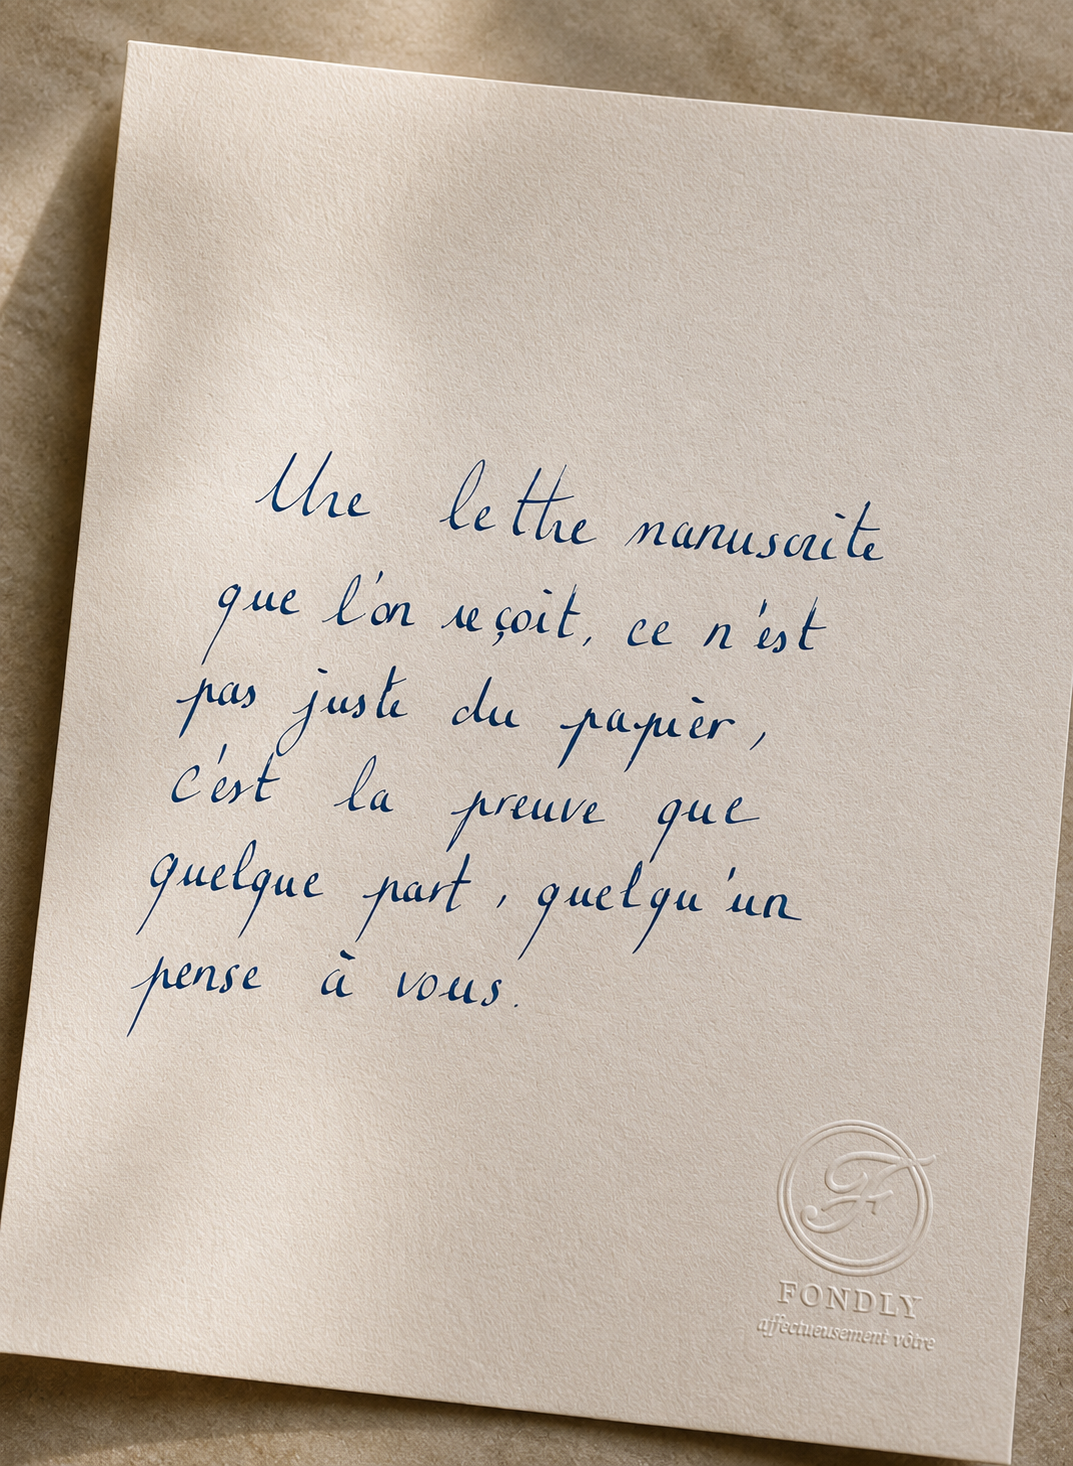 Une lettre manuscrite
que l'on reçoit, ce n'est
pas juste du papier,
c'est la preuve que
quelque part, quelqu'un
pense à vous.
F
FONDLY
affectueusement vôtre